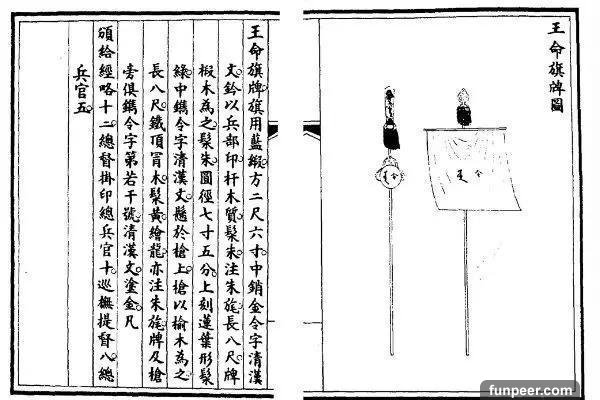 王命旗牌圖
令
令
王命旗牌旗用藍緞方二尺六寸中銷金令字清漢
文鈐以兵部印杆木質髹朱注朱旄長八尺牌
椴木為之髹朱圓徑七寸五分上刻蓮葉形髹
綠中鐫令字清漢文懸於槍上槍以榆木為之
長八尺鐵頂冒木髹黃繪龍亦注朱旄牌及槍
旁俱鐫令字第若干號清漢文塗金凡
頒給經略十二總督掛印總兵官十巡撫提督八總
兵官五
funpeer.com